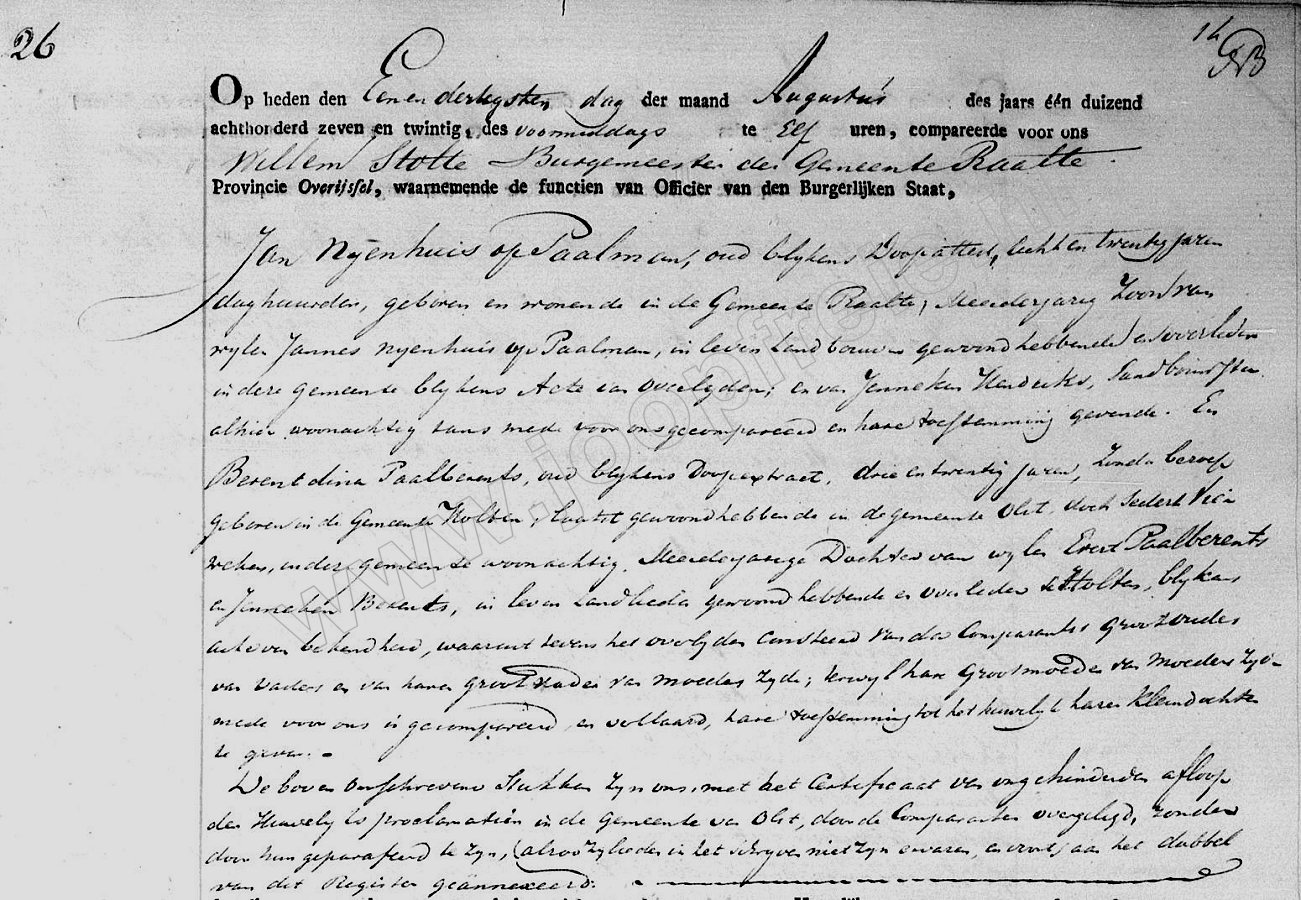 26
14
Op heden den Eenendertigsten dag der maand Augustus des jaars één duizend
achthonderd zeven en twintig, des voormiddags te Elf uren, compareerde voor ons
Willem Stolte Burgemeester der Gemeente Raalte
Provincie Overijssel, waarnemende de functien van Officier van den Burgerlijken Staat,
Jan Nyenhuis op Paalman, oud blykens Doopattest, acht en twentig jaren
daghuurder, geboren en wonende in de Gemeente Raalte, Meerderjarig Zoon van
wylen Jannes Nyenhuis op Paalman, in leven Landbouwer gewoond hebbende en overleden
in deze gemeente blykens Acte van overlyden; en van Jenneken Hendriks, Landbouwster
alhier woonachtig thans mede voor ons gecompareerd en hare toestemming gevende. En
Berentdina Paalberents, oud blykens Doopextract, drie en twintig jaren, zonder beroep
geboren in de Gemeente Holten, laatst gewoond hebbende in de gemeente Olst, doch sedert vier
weken, in deze gemeente woonachtig, Meerderjarige Dochter van wylen Evert Paalberents
en Jenneken Berents, in leven Landlieden gewoond hebbende en overleden te Holten, blykens
acte van bekendheid, waaruit tevens het overlyden consteerd van der Comparante Grootouders
van vaders en van haren Grootvader van moeders zyde; terwyl hare Grootmoeder van moeders zyde
mede voor ons is gecompareerd, en verklaard, hare toestemming tot het huwelyk harer kleindochter
te geven. -
De boven omschrevene Stukken zyn ons, met het Certificaat van ongehinderden afloop
der Huwelyks proclamatien in de Gemeente van Olst, door de Comparanten overgelegd, zonder
door hun geparafeerd te zyn, (alzoo zylieden in het schryven niet zyn ervaren, en wordt aan het dubbel
van dit Register geannexeerd.
www.joopfrele.nl